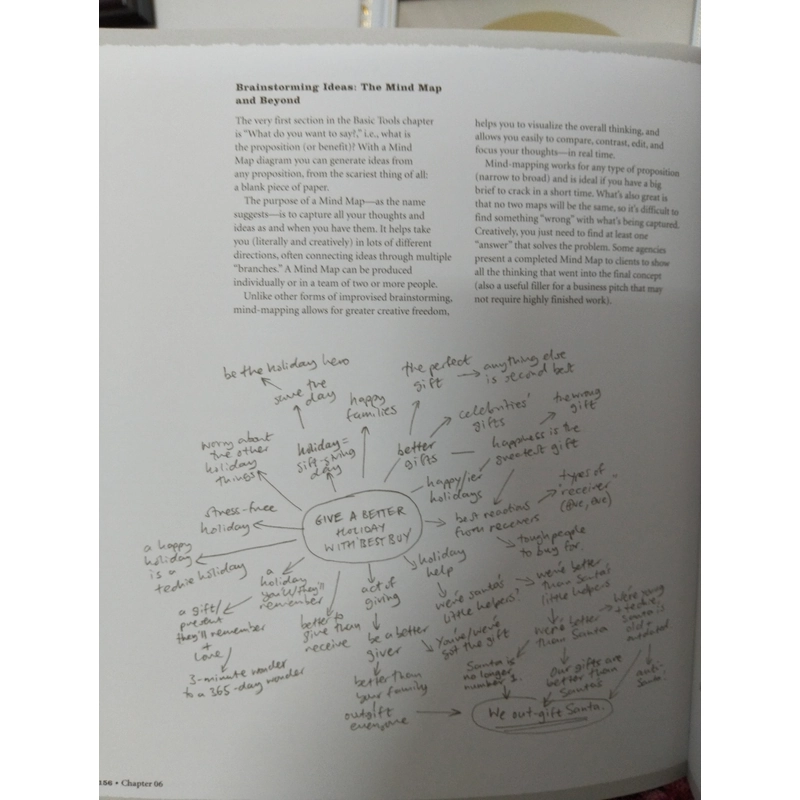 Brainstorming Ideas: The Mind Map
and Beyond
The very first section in the Basic Tools chapter
is "What do you want to say?," i.e., what is
the proposition (or benefit)? With a Mind
Map diagram you can generate ideas from
any proposition, from the scariest thing of all:
a blank piece of paper.
The purpose of a Mind Map—as the name
suggests—is to capture all your thoughts and
ideas as and when you have them. It helps take
you (literally and creatively) in lots of different
directions, often connecting ideas through multiple
"branches." A Mind Map can be produced
individually or in a team of two or more people.
Unlike other forms of improvised brainstorming,
mind-mapping allows for greater creative freedom,
helps you to visualize the overall thinking, and
allows you easily to compare, contrast, edit, and
focus your thoughts—in real time.
Mind-mapping works for any type of proposition
(narrow to broad) and is ideal if you have a big
brief to crack in a short time. What's also great is
that no two maps will be the same, so it's difficult to
find something "wrong" with what's being captured.
Creatively, you just need to find at least one
"answer" that solves the problem. Some agencies
present a completed Mind Map to clients to show
all the thinking that went into the final concept
(also a useful filler for a business pitch that may
not require highly finished work).
be the holiday hero
save the
day
happy
families
the perfect
gift
anything else
is second best
celebrities'
gifts
the wrong
gift
worry about
the other
holiday
things
holiday=
gift-giving
day
better
gifts
happiness is the
greatest gift
happy/ier
holidays
stress-free
holiday
GIVE A BETTER
HOLIDAY
WITH 'BEST BUY'
best reactions
from receivers
types of
"receiver"
tough people
to buy for.
a happy
holiday
is a
techie holiday
a
holiday
you'll/they'll
remember
act of
giving
holiday
help
we're santa's
little helpers?
we're better
than Santa's
little helpers
a gift/
present
they'll remember
+
love
3-minute wonder
to a 365-day wonder
better to
give than
receive
be a better
giver
You've/we've
got the gift
we're better
than Santa
We're young
+ techie,
Santa is
old +
outdated
better than
your family
Santa is
no longer
number 1.
Our gifts are
better than
Santa's
anti-
Santa.
outgift
everyone
We out-gift Santa.
156 • Chapter 06